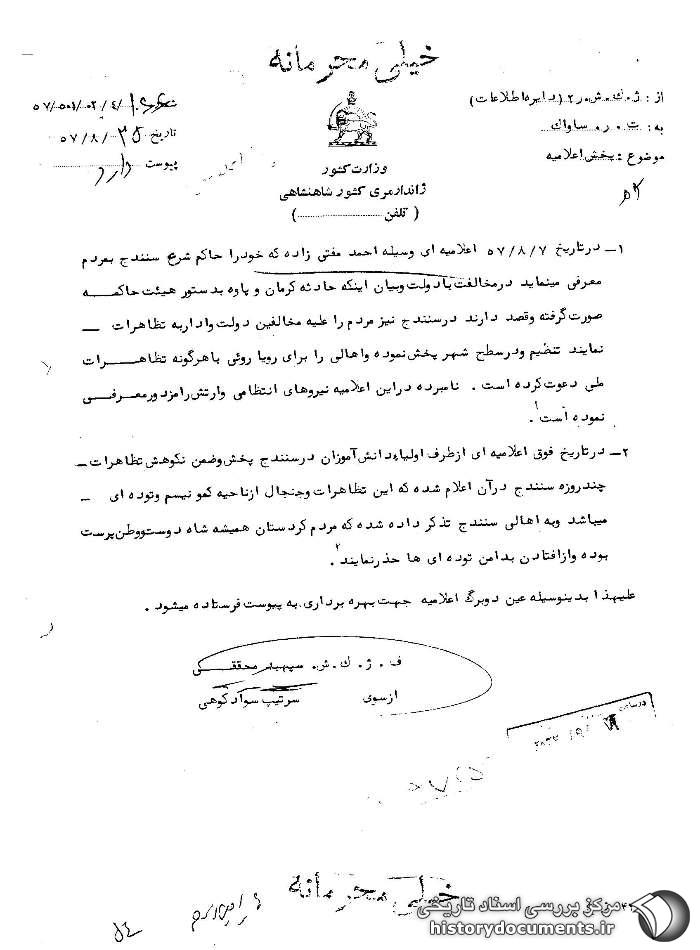 خیلی محرمانه
از : ژ . ك . ش . ر۲ ( دایره اطلاعات )
به : ت . ر . ساواك
موضوع : پخش اعلامیه
شماره
تاریخ ۵۷/۸/۲۵
پیوست دارد
وزارت کشور
ژاندارمری کشور شاهنشاهی
( تلفن .................... )
۱ـ درتاریخ ۵۷/۸/۷ اعلامیه ای وسیله احمد مفتی زاده که خودرا حاکم شرع سنندج بمردم
معرفی مینماید درمخالفت بادولت وبیان اینکه حادثه کرمان و پاوه بدستور هیئت حاکمـــه
صورت گرفته وقصد دارند درسنندج نیز مردم را علیه مخالفین دولت وادار به تظاهرات ــ
نمایند تنظیم ودرسطح شهر پخش نموده واهالی را برای رویا روئی باهرگونه تظاهـــرات
ملی دعوت کرده است . نامبرده دراین اعلامیه نیروهای انتظامی وارتش رامزدورمعـرفـــی
نموده است۱ .
۲ـ درتاریخ فوق اعلامیه ای ازطرف اولیاء دانش آموزان درسنندج پخش وضمن نکوهش تظاهرات ــ
چندروزه سنندج درآن اعلام شده که این تظاهرات وجنجال ازناحیه کمو نیسم وتوده ای ــ
میباشد وبه اهالی سنندج تذکر داده شده که مردم کردستان همیشه شاه دوست ووطن پرست
بوده وازافتادن بدامن توده ای ها حذرنمایند۲ .
علیهذا بدینوسیله عین دوبرگ اعلامیه جهت بهره برداری به پیوست فرستاده میشود .
ف . ژ . ك . ش . سپهبد محققـــی
ازسوی سرتیپ سوادکوهی
خیلی محرمانه
مرکز بررسی اسناد تاریخی
historydocuments.ir